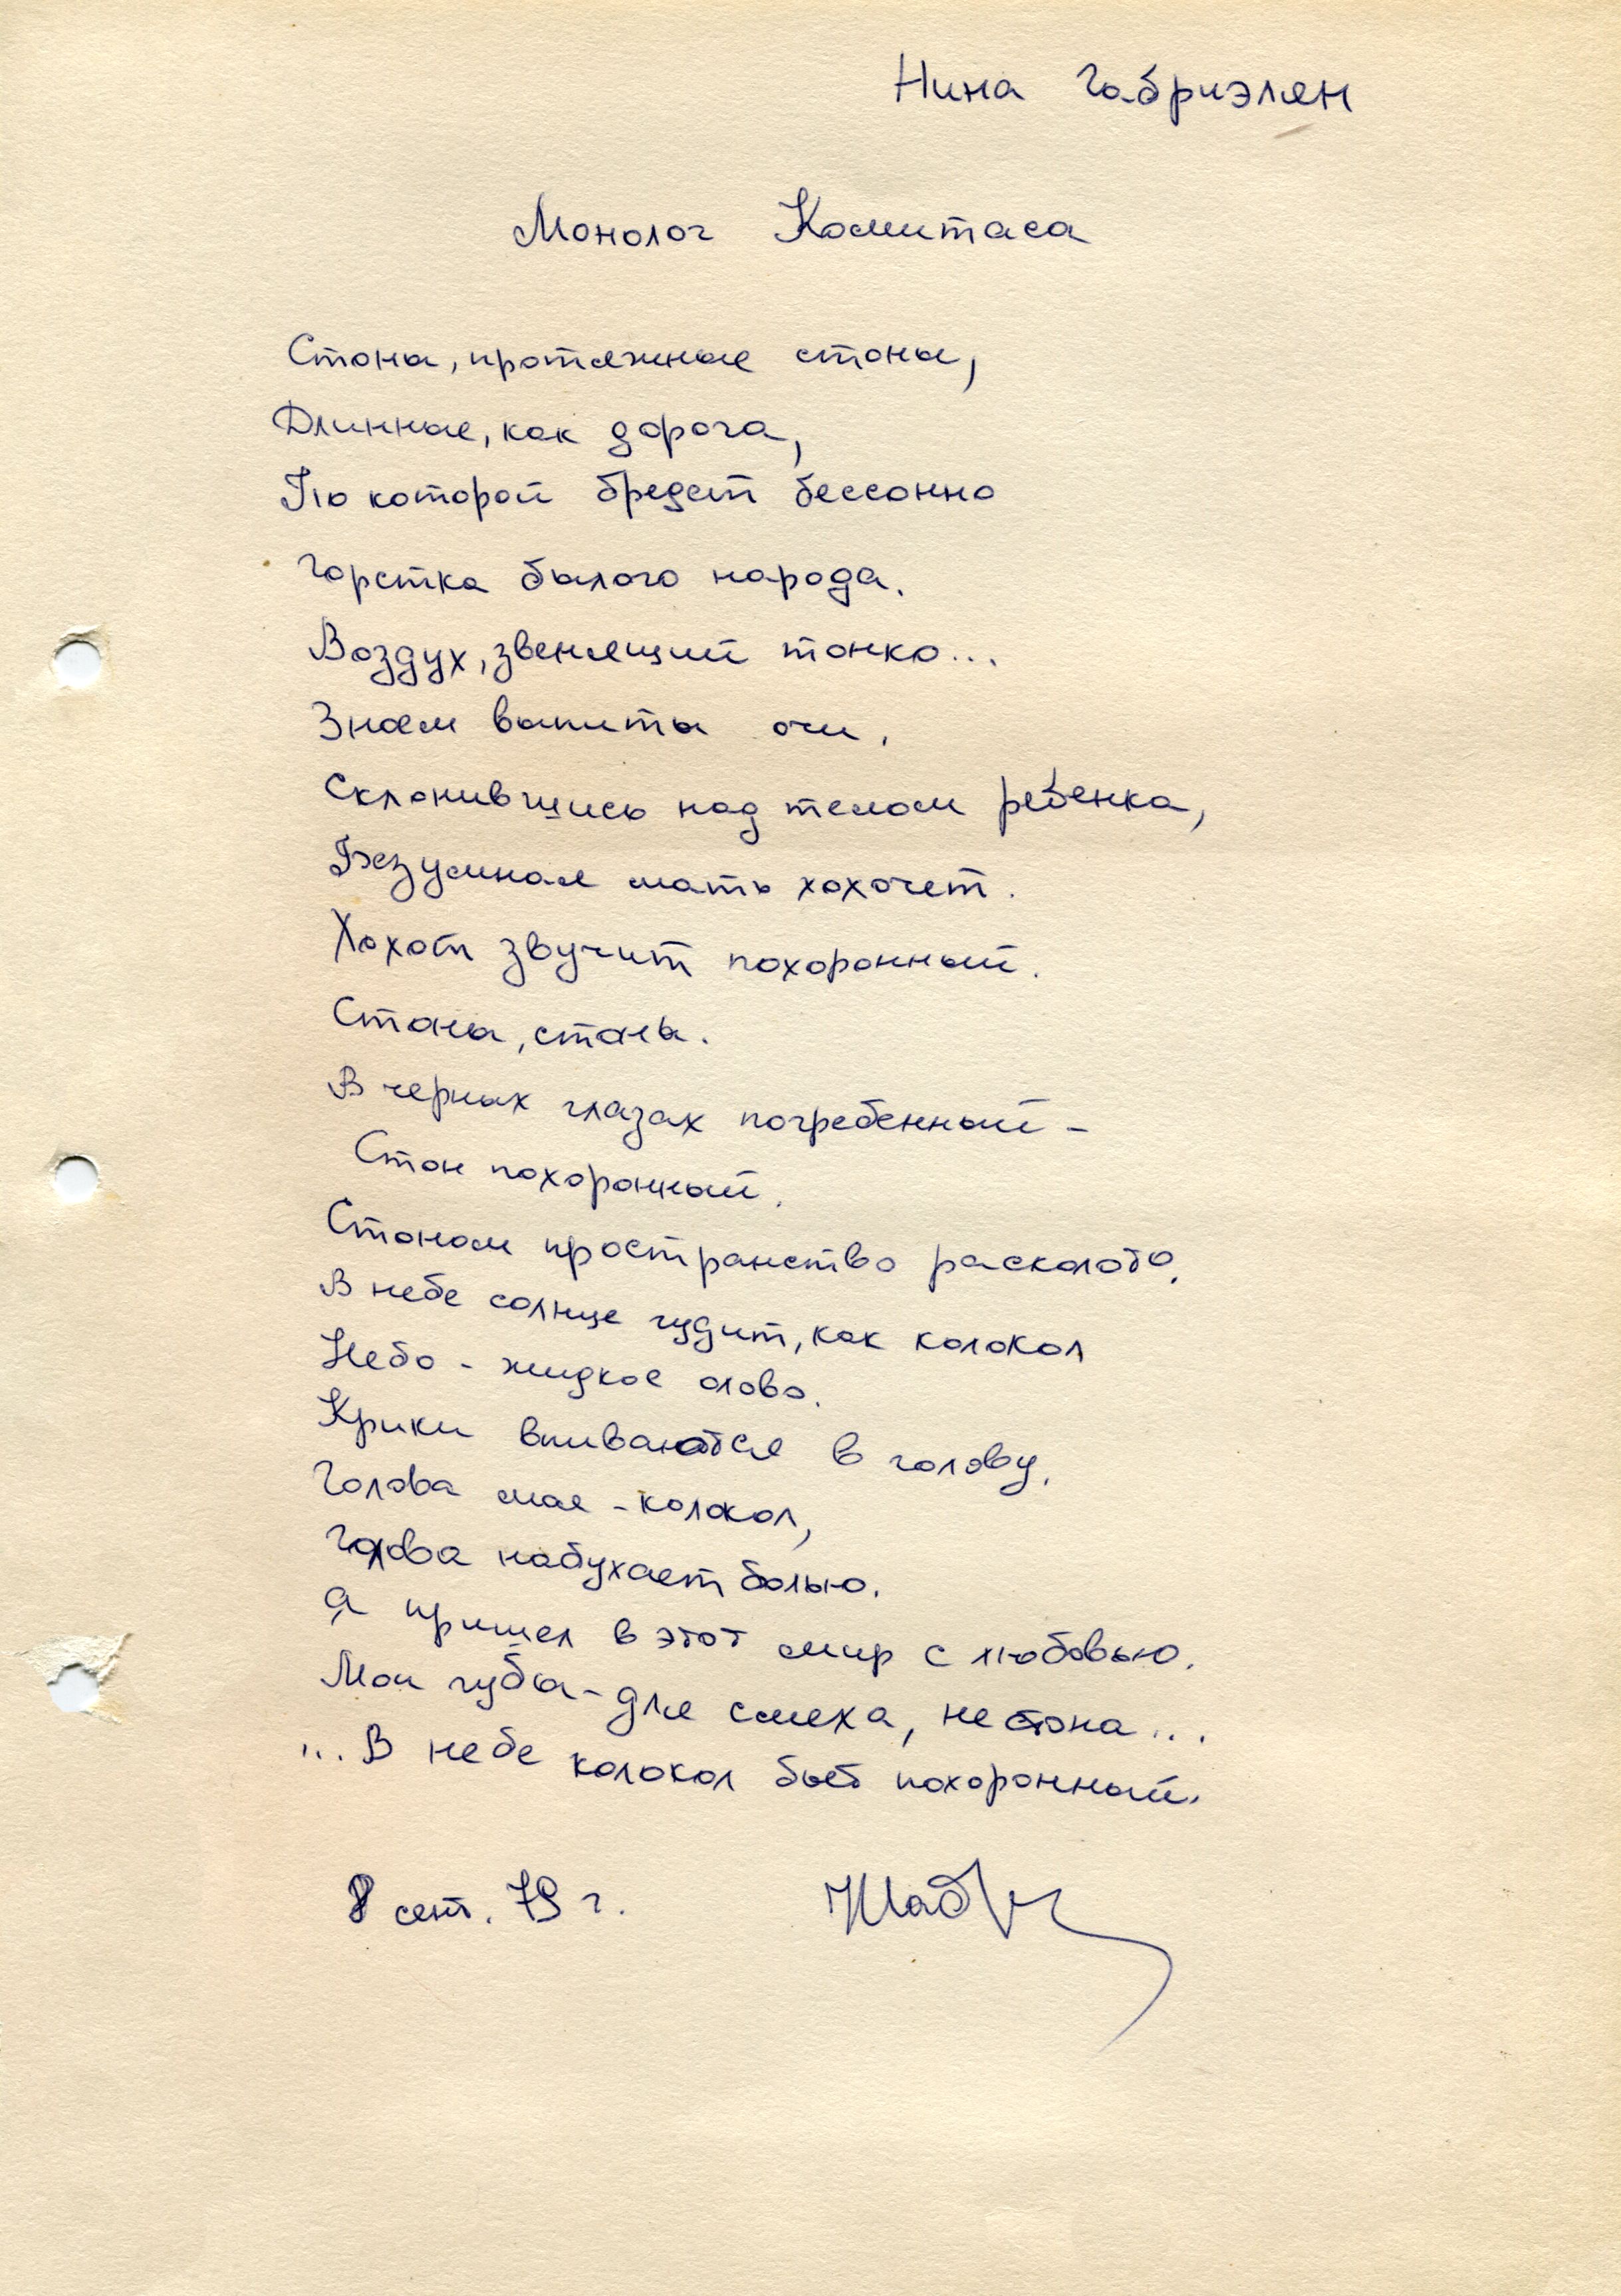 Нина Габриэлян
Монолог Комитаса
Стоны, протяжные стоны,
Длинные, как дорога,
По которой бредет бессонно
Горстка былого народа.
Воздух, звенящий тонко...
Зноем выпиты очи.
Склонившись над телом ребенка,
Безумная мать хохочет.
Хохот звучит похоронный.
Стоны, стоны.
В черных глазах погребенный –
Стон похоронный.
Стоном пространство расколото.
В небе солнце гудит, как колокол
Небо - жидкое олово.
Крики впиваются в голову.
Голова моя - колокол,
Голова набухает болью.
Я пришел в этот мир с любовью.
Мои губы - для смеха, не стона...
... В небе колокол бьет похоронный.
8 сент. 79 г.